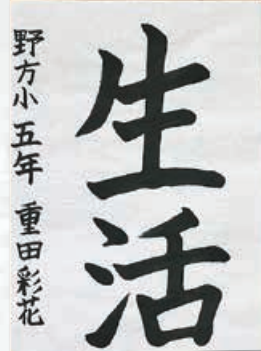 生活
野方小 五年 重田彩花